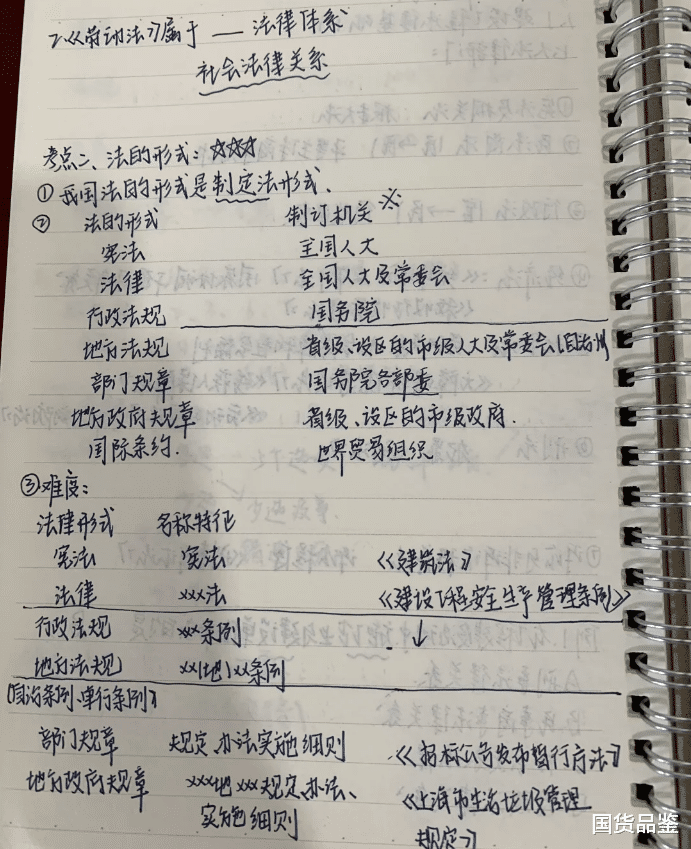 2、《劳动法》属于 — 法律体系
社会法律关系
考点二、法的形式：☆☆☆
① 我国法的形式是制定法形式．
② 法的形式 制订机关 ※
宪法 全国人大
法律 全国人大及常委会
行政法规 国务院
地方法规 省级、设区的市级人大及常委会（自治州
部门规章 国务院各部委
地方政府规章 省级、设区的市级政府．
国际条约． 世界贸易组织
③ 难度：
法律形式 名称特征
宪法 宪法 《建筑法》
法律 xxx法 《建设工程安全生产管理条例》
行政法规 xxx条例 ↓
地方法规 xx(地)xx条例
（自治条例、单行条例）
部门规章 规定、办法实施细则 《招标公告发布暂行办法》
地方政府规章 xxx地xxx规定、办法、 《上海市生活垃圾管理
实施细则 规定》
国货品鉴